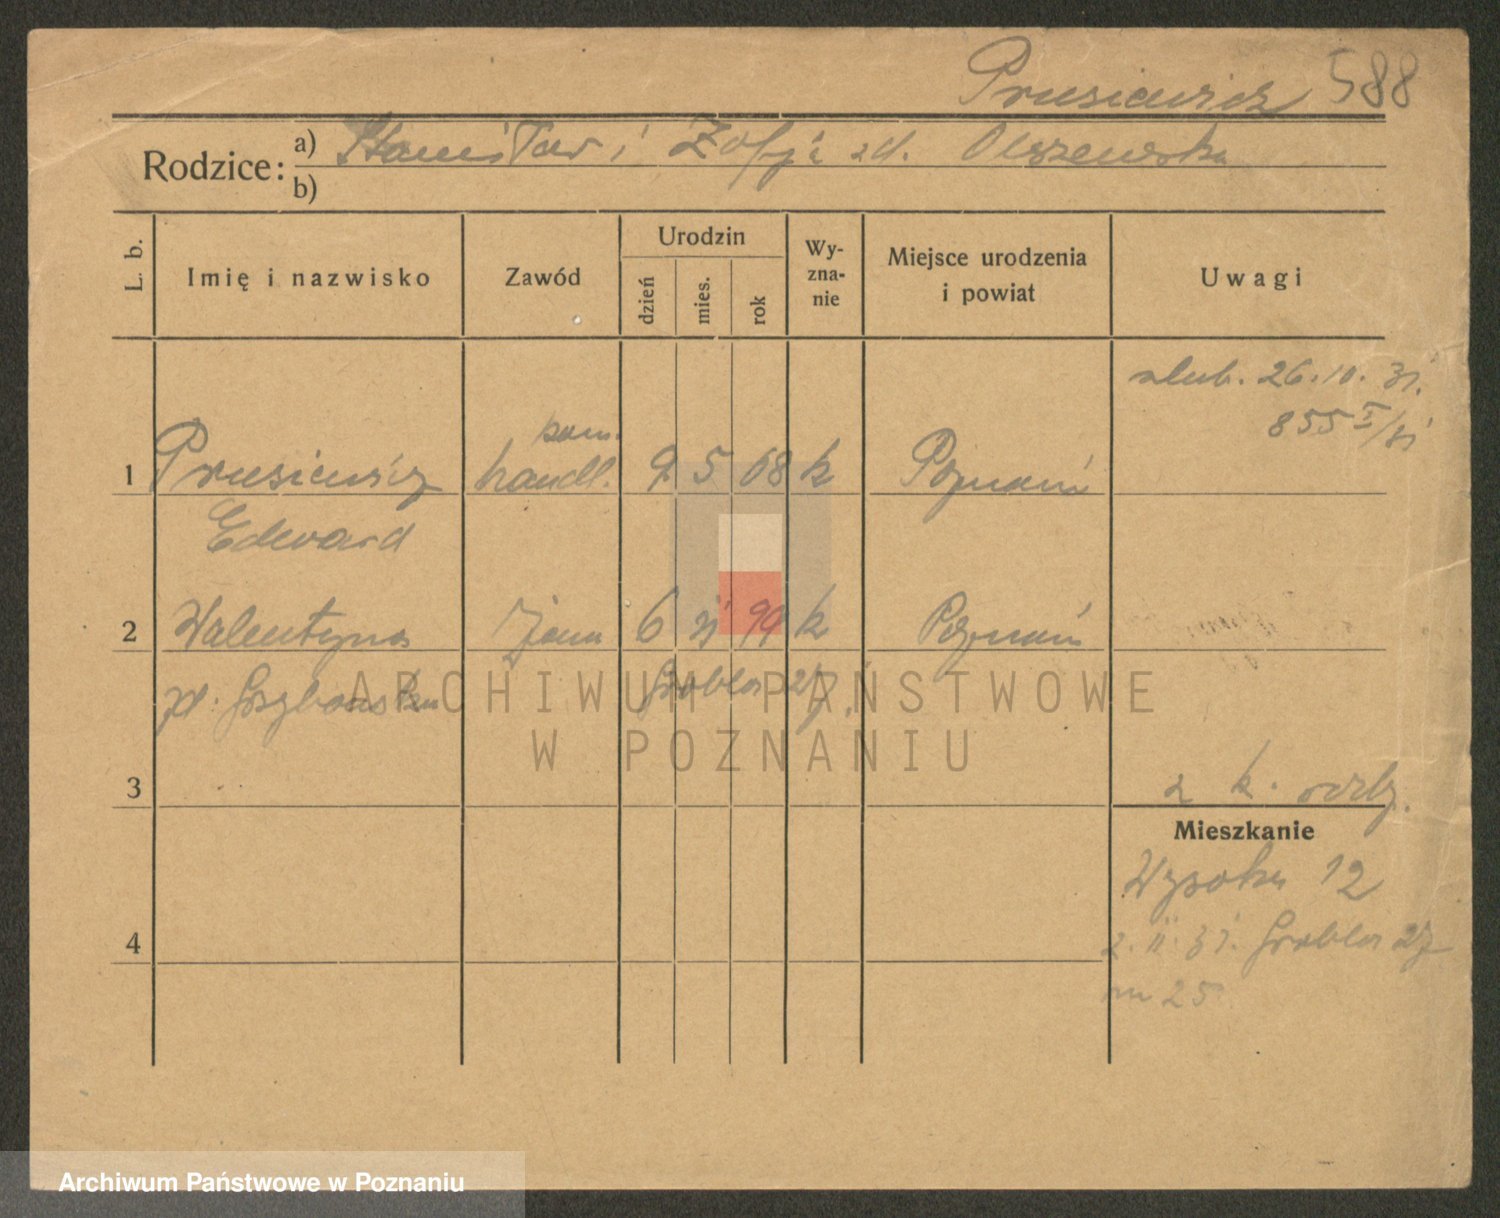 Prusiewicz 588
Rodzice: a) Stanisław i Zofja zd. Olszewska
b)
L. b.
Imię i nazwisko
Zawód
Urodzin
dzień
mies.
rok
Wy-
zna-
nie
Miejsce urodzenia
i powiat
Uwagi
ślub. 26.10.31.
855 I/31
pom.
1 Prusiewicz handl. 9 5 08 k Poznań
Edward
2 Walentyna żona 6 99 k Poznań
Grobla 27
3
z k.
Mieszkanie
Wysoka 12
4
2. 11. 31. Grobla 27
m 25
ARCHIWUM PAŃSTWOWE
W POZNANIU
Archiwum Państwowe w Poznaniu